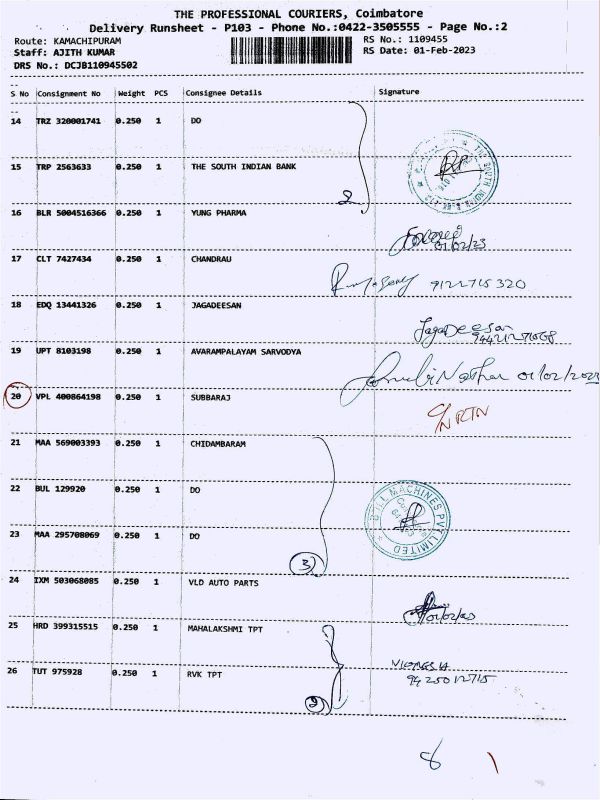 THE PROFESSIONAL COURIERS, Coimbatore
Delivery Runsheet - P103 - Phone No.:0422-3505555 - Page No.:2
Route: KAMACHIPURAM RS No.: 1109455
Staff: AJITH KUMAR RS Date: 01-Feb-2023
DRS No.: DCJB110945502
S No Consignment No Weight PCS Consignee Details Signature
14 TRZ 320001741 0.250 1 DO
15 TRP 2563633 0.250 1 THE SOUTH INDIAN BANK
2
16 BLR 5004516366 0.250 1 YUNG PHARMA
01/02/23
17 CLT 7427434 0.250 1 CHANDRAU
9122715320
18 EDQ 13441326 0.250 1 JAGADEESAN
JagaDeesan
19 UPT 8103198 0.250 1 AVARAMPALAYAM SARVODYA
20 VPL 400864198 0.250 1 SUBBARAJ
C/N RTN
21 MAA 569003393 0.250 1 CHIDAMBARAM
22 BUL 129920 0.250 1 DO
MACHINES PVT LIMITED
23 MAA 295708069 0.250 1 DO
3
24 IXM 503068085 0.250 1 VLD AUTO PARTS
01/02/23
25 HRD 399315515 0.250 1 MAHALAKSHMI TPT
26 TUT 975928 0.250 1 RVK TPT
9425012715
2
8